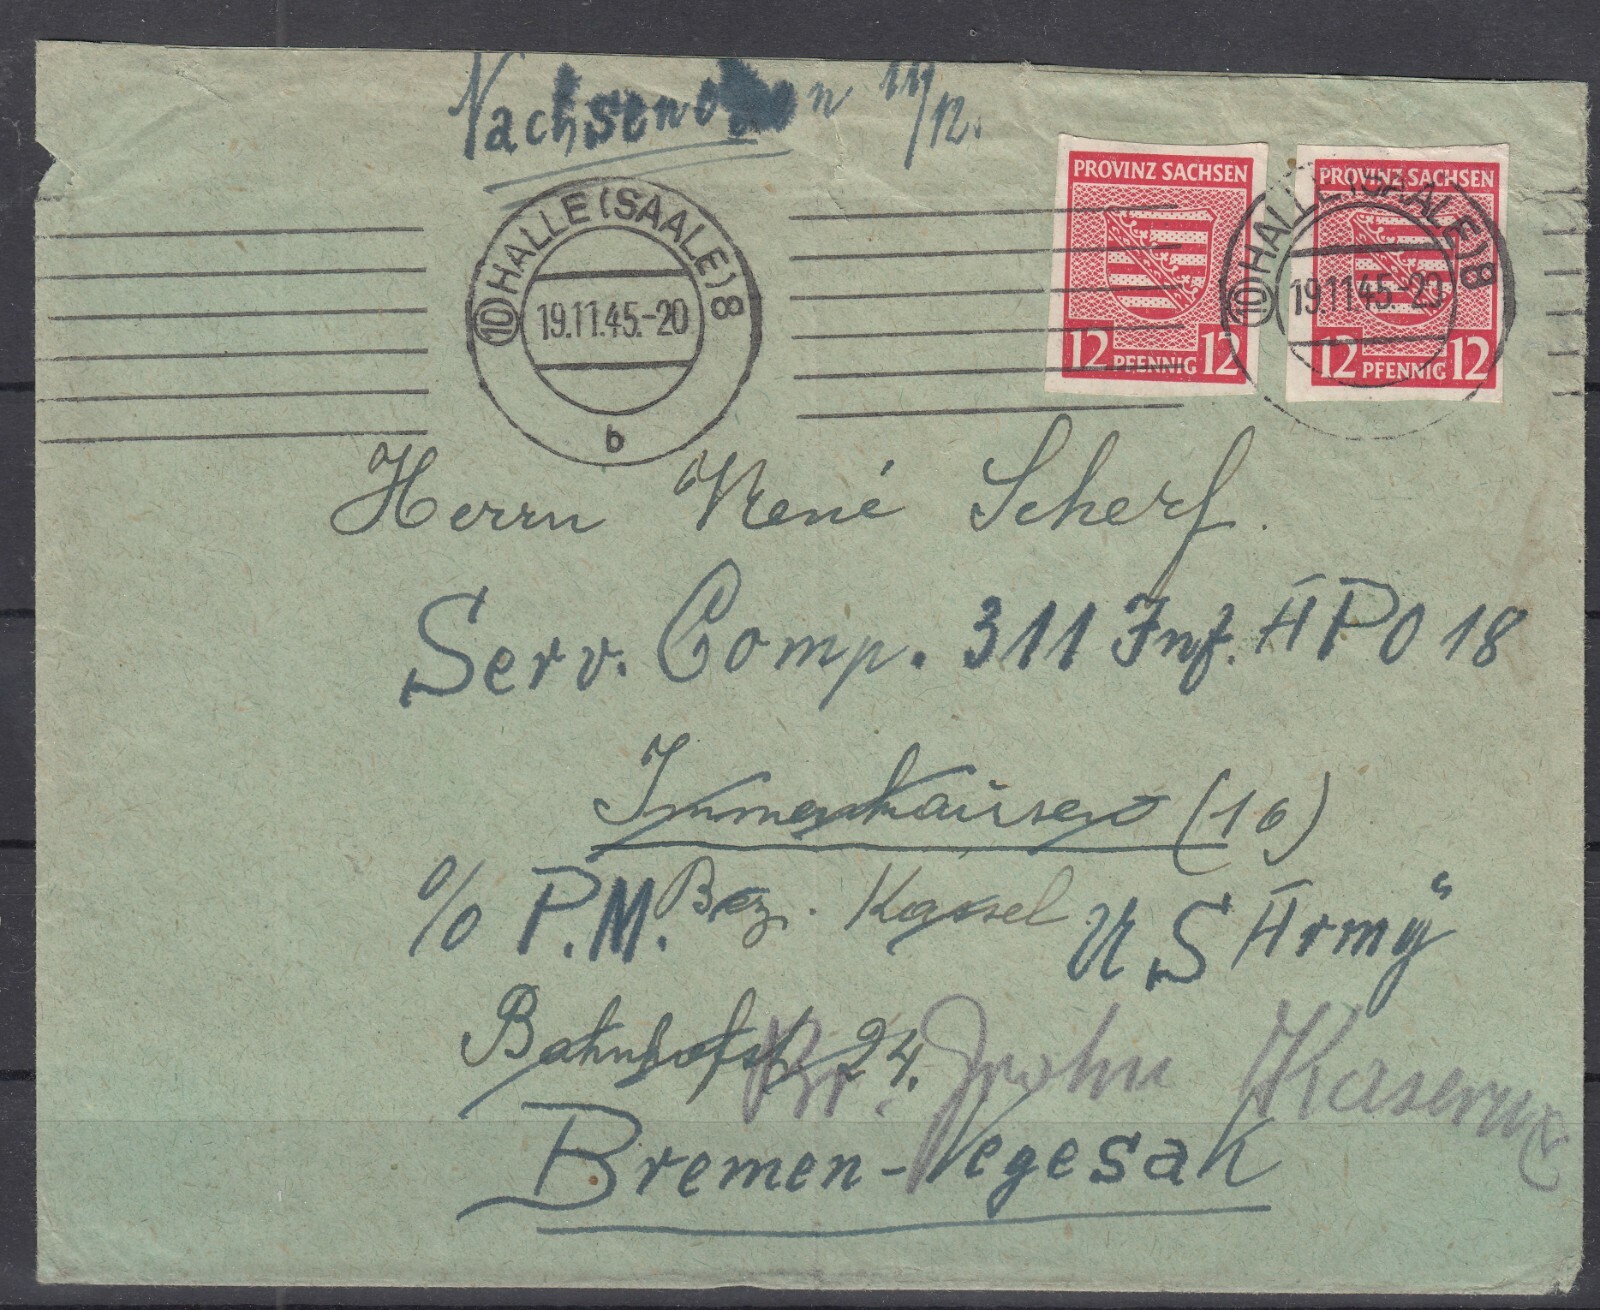 Nachsenden 11/12.
PROVINZ SACHSEN
12 PFENNIG 12
PROVINZ SACHSEN
12 PFENNIG 12
(10) HALLE (SAALE) 8
19.11.45.-20
b
(10) HALLE (SAALE) 8
19.11.45.-20
Herrn René Scherf.
Serv. Comp. 311 Inf. APO 18
Immenhausen (16)
Bez. Kassel
c/o P.M. US Army"
Bahnhofstr. 24.
Br. Grohn Kaserne
Bremen-Vegesak